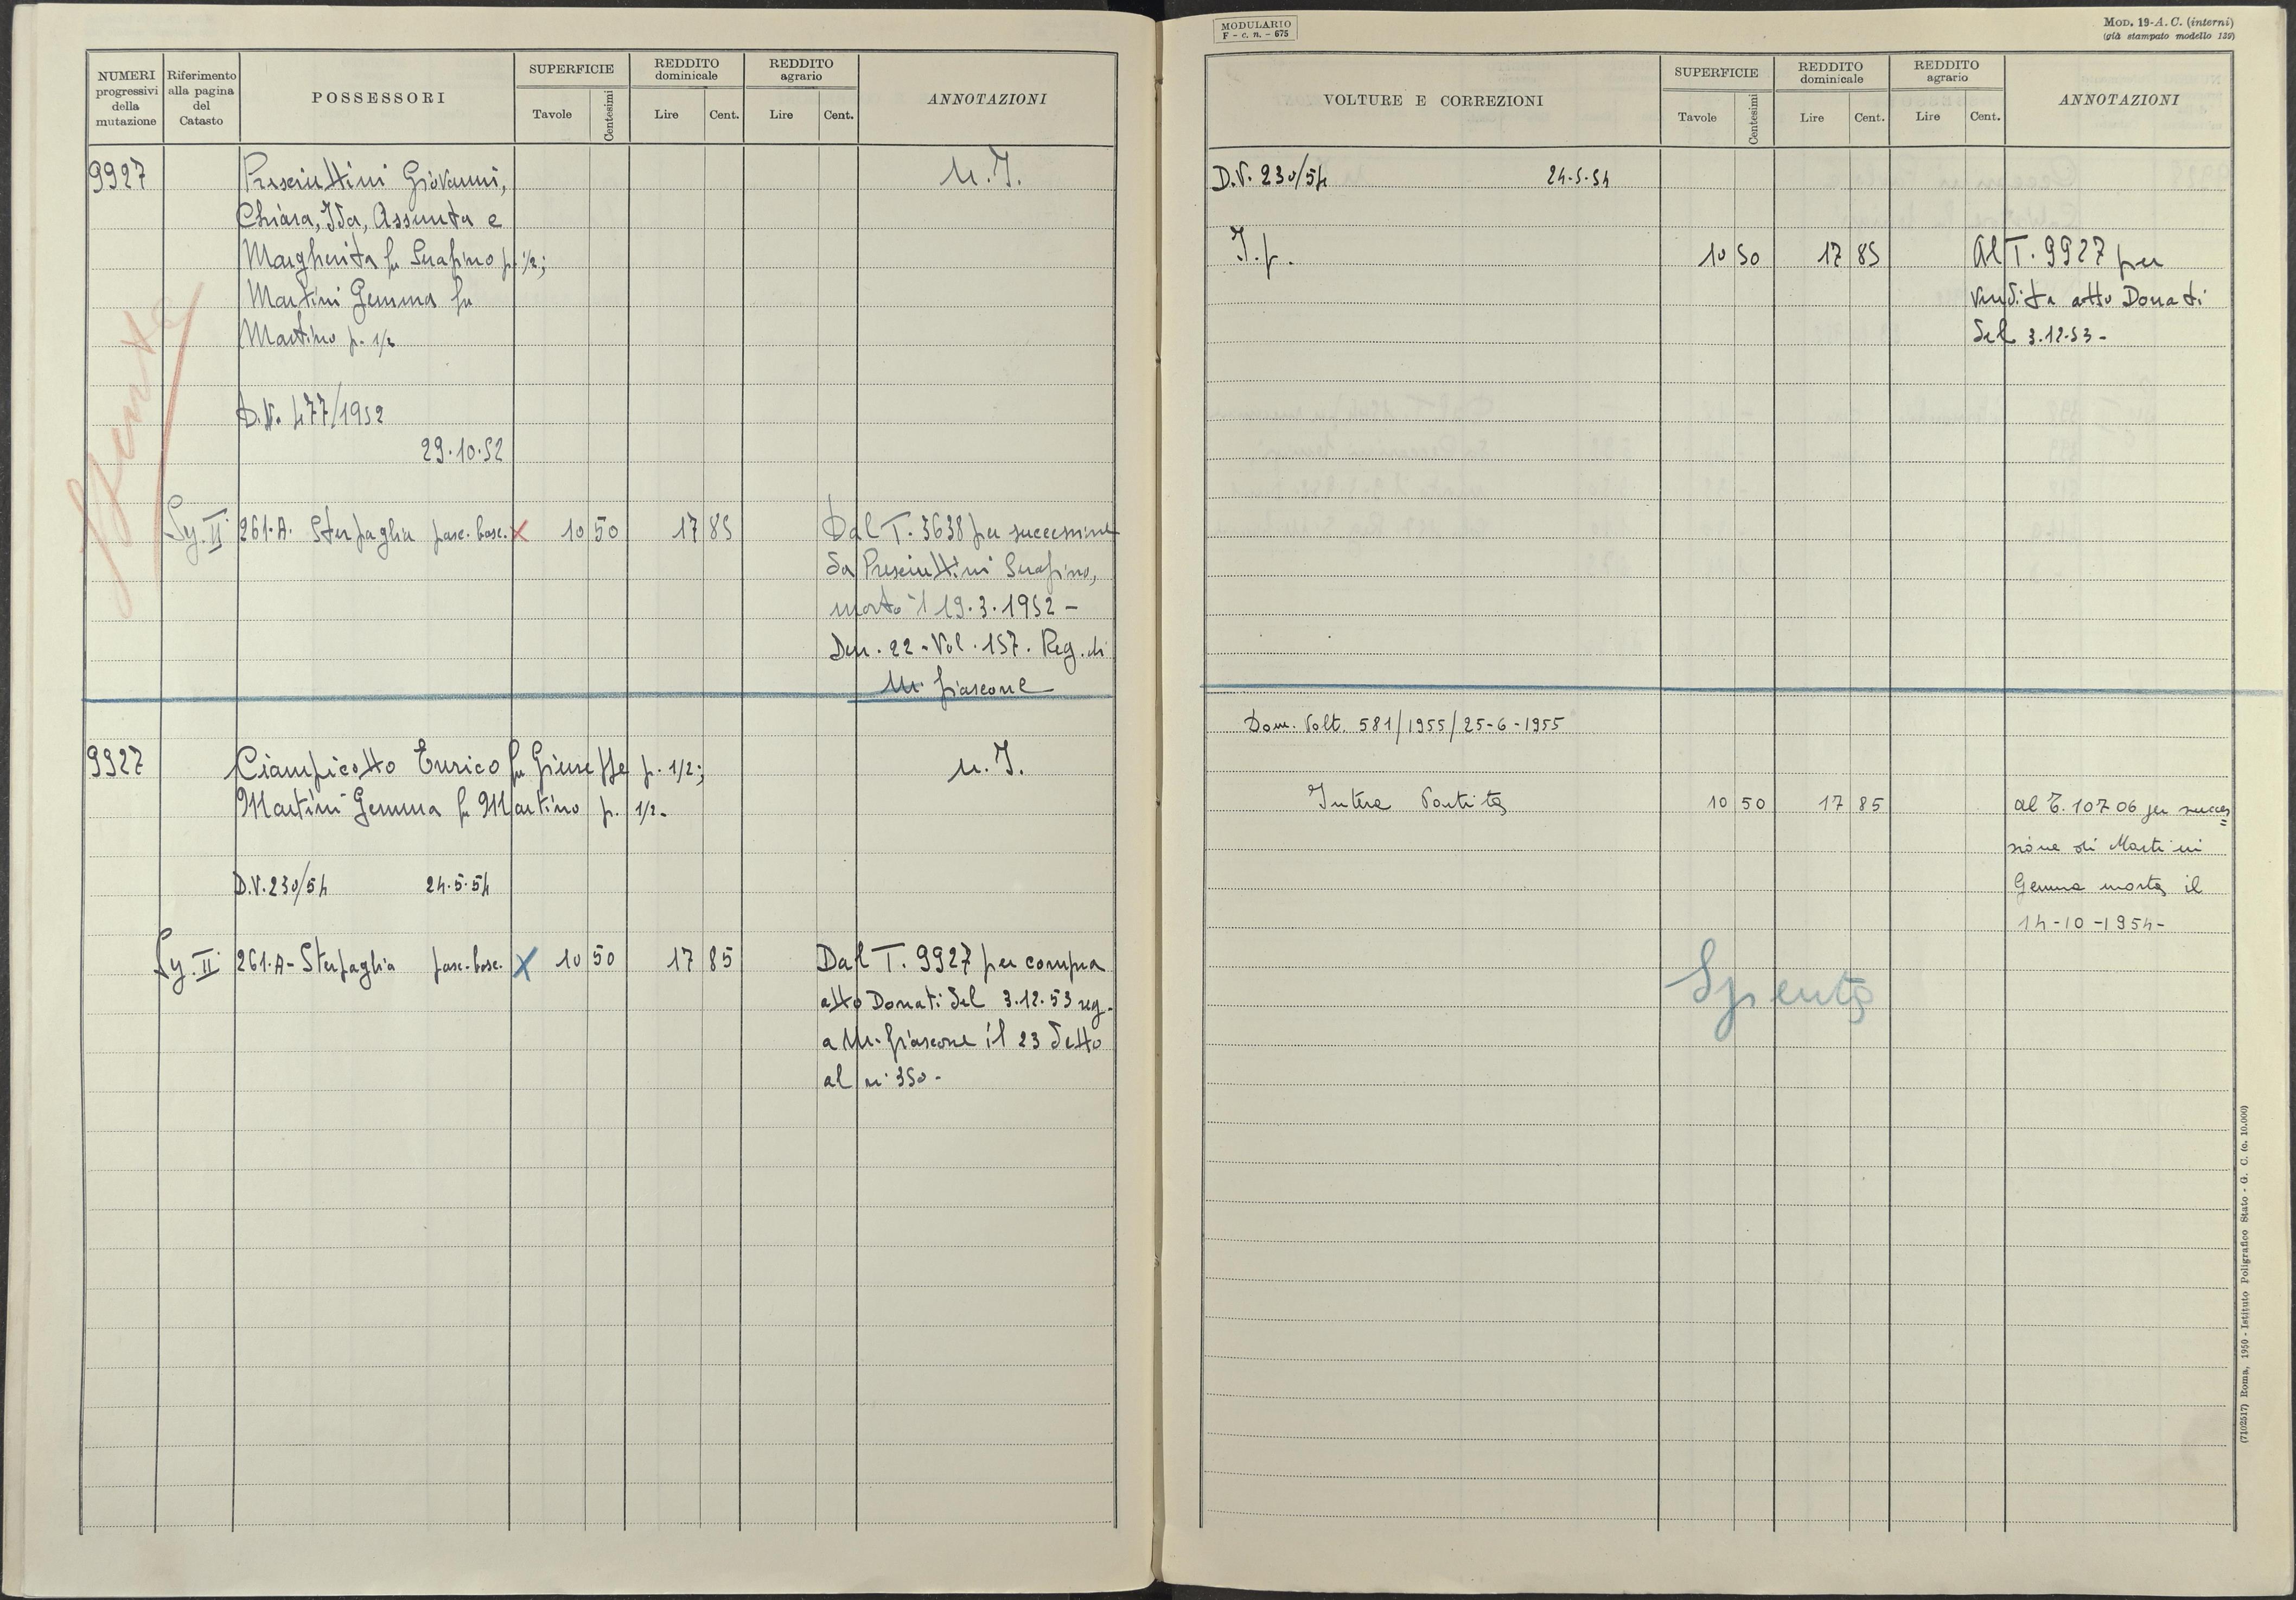 NUMERI progressivi della mutazione
Riferimento alla pagina del Catasto
POSSESSORI
SUPERFICIE
Tavole Centesimi
REDDITO dominicale
Lire Cent.
REDDITO agrario
Lire Cent.
ANNOTAZIONI
9927 Presciuttini Giovanni, M.I.
Chiara, Ida, Assunta e
Margherita fu Serafino p. 1/2;
Martini Gemma fu
Martino p. 1/2
Spenta
D.V. 477/1952
29.10.52
Sy. II 261.A. Sterpaglia pasc. bosc. x 10 50 17 85 Dal T. 3638 per successione
da Presciuttini Serafino,
morto il 19.3.1952 -
Den. 22 - Vol. 157. Reg. di
M. fiascone
9927 Ciampicotto Enrico fu Giuseppe p. 1/2; M.I.
Martini Gemma fu Martino p. 1/2.
D.V. 230/54 24.5.54
Sy. II 261.A - Sterpaglia pasc. bosc. x 10 50 17 85 Dal T. 9927 per compra
atto Donati del 3.12.53 reg.
a M. fiascone il 23 detto
al n. 350 -
MODULARIO
F - c. n. - 675
MOD. 19-A. C. (interni)
(già stampato modello 139)
VOLTURE E CORREZIONI
SUPERFICIE
Tavole Centesimi
REDDITO dominicale
Lire Cent.
REDDITO agrario
Lire Cent.
ANNOTAZIONI
D.V. 230/54 24.5.54
I.p. 10 50 17 85 Al T. 9927 per
vendita atto Donati
del 3.12.53 -
Dom. Volt. 581/1955/25-6-1955
Intera Partita 10 50 17 85 al T. 10706 per succes=
sione di Martini
Gemma morta il
14-10-1954-
Spenta
(7102517) Roma, 1950 - Istituto Poligrafico Stato - G. C. (c. 10.000)